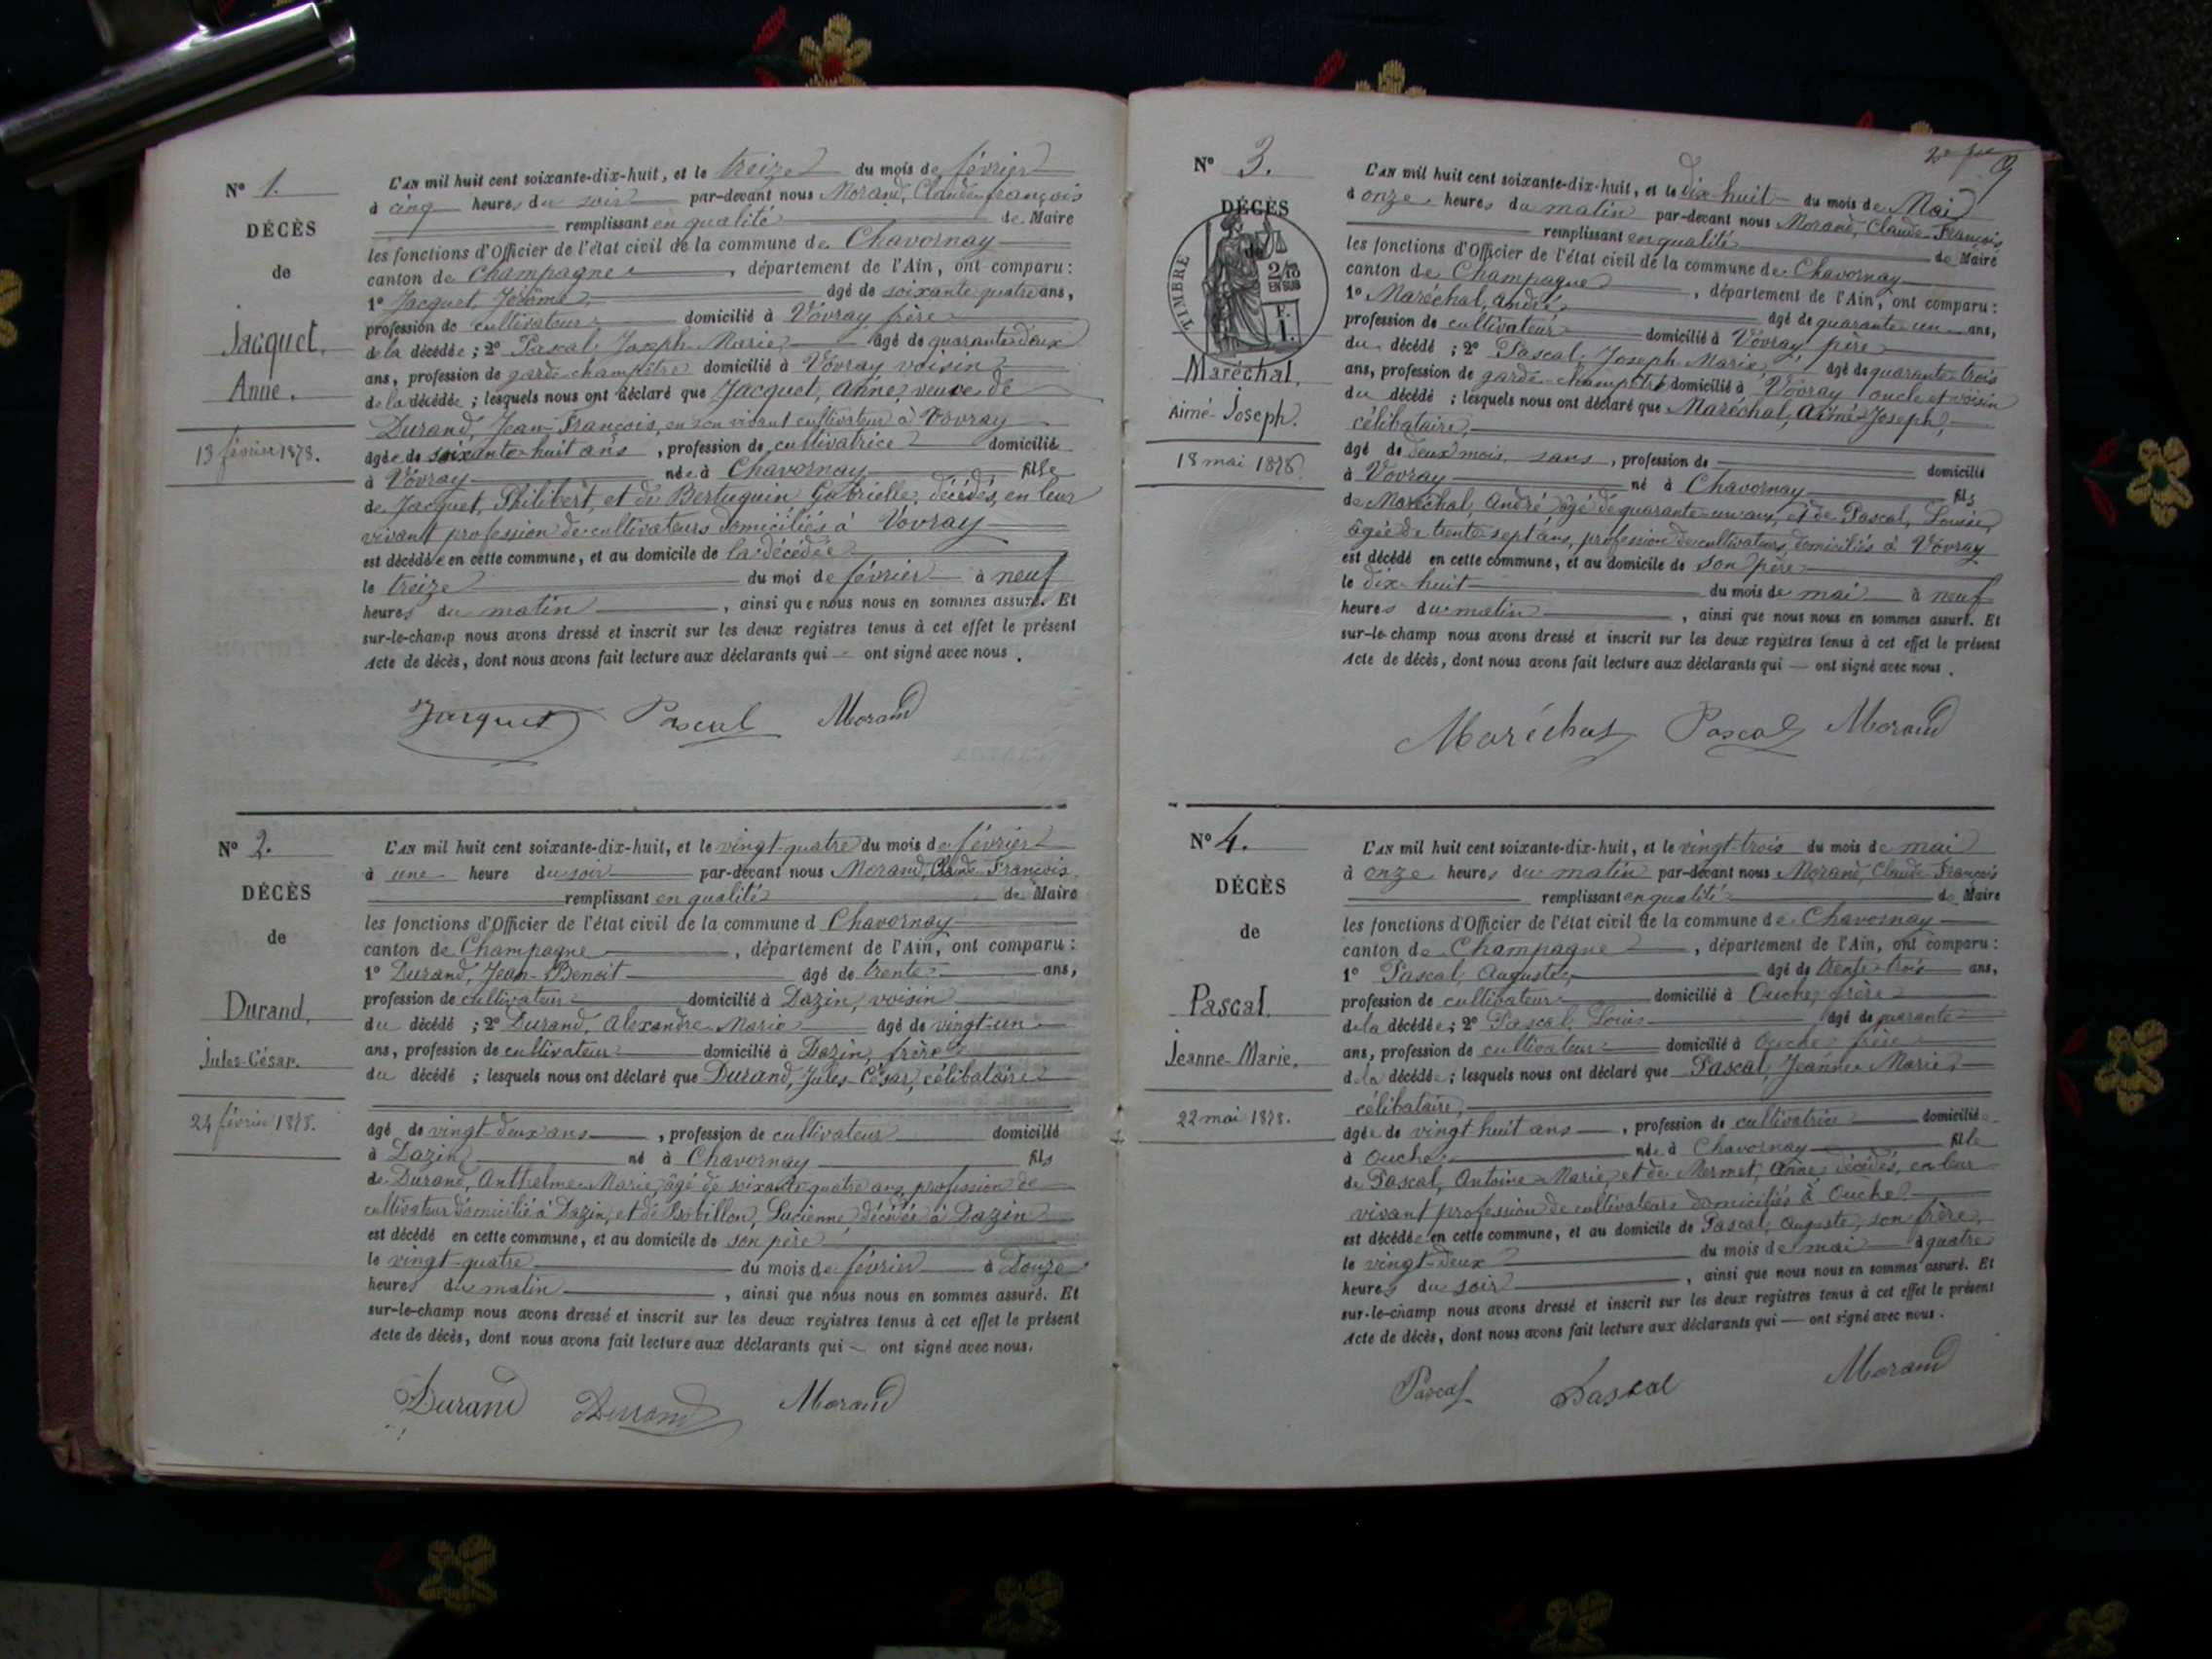 N° 1.
DÉCÈS
de
Jacquet,
Anne.
13 février 1878.
L'AN mil huit cent soixante-dix-huit, et le treize du mois de février
à cinq heures du soir par-devant nous Morand, Claude-françois
remplissant en qualité de Maire
les fonctions d'Officier de l'état civil de la commune de Chavornay
canton de Champagne, département de l'Ain, ont comparu :
1° Jacquet, Jérôme, âgé de soixante quatre ans,
profession de cultivateur domicilié à Vovray frère
de la décédée ; 2° Pascal, Joseph-Marie, âgé de quarante-deux
ans, profession de garde-champêtre domicilié à Vovray voisin
de la décédée ; lesquels nous ont déclaré que Jacquet, Anne, veuve de
Durand, Jean-François, en son vivant cultivateur à Vovray
âgée de soixante-huit ans, profession de cultivatrice domicilié
à Vovray née à Chavornay fille
de Jacquet, Philibert, et de Bertuquin Gabrielle, décédés, en leur
vivant profession de cultivateurs domiciliés à Vovray
est décédée en cette commune, et au domicile de la décédée
le treize du moi de février à neuf
heures du matin, ainsi que nous nous en sommes assuré. Et
sur-le-champ nous avons dressé et inscrit sur les deux registres tenus à cet effet le présent
Acte de décès, dont nous avons fait lecture aux déclarants qui — ont signé avec nous.
Jacquet Pascal Morand
N° 2.
DÉCÈS
de
Durand,
Jules-César.
24 février 1878.
L'AN mil huit cent soixante-dix-huit, et le vingt-quatre du mois de février
à une heure du soir par-devant nous Morand, Claude-François,
remplissant en qualité de Maire
les fonctions d'Officier de l'état civil de la commune d Chavornay
canton de Champagne, département de l'Ain, ont comparu :
1° Durand, Jean-Benoit âgé de trente ans,
profession de cultivateur domicilié à Dazin, voisin
du décédé ; 2° Durand, Alexandre-Marie âgé de vingt-un
ans, profession de cultivateur domicilié à Dazin, frère
du décédé ; lesquels nous ont déclaré que Durand, Jules-César, célibataire
âgé de vingt-deux ans, profession de cultivateur domicilié
à Dazin né à Chavornay fils
de Durand, Anthelme-Marie, âgé de soixante quatre ans, profession de
cultivateur domicilié à Dazin, et de Lucienne, décédée à Dazin
est décédé en cette commune, et au domicile de son père
le vingt-quatre du mois de février à Douze
heures du matin, ainsi que nous nous en sommes assuré. Et
sur-le-champ nous avons dressé et inscrit sur les deux registres tenus à cet effet le présent
Acte de décès, dont nous avons fait lecture aux déclarants qui — ont signé avec nous.
Durand Durand Morand
N° 3.
DÉCÈS
TIMBRE
2/10
EN SUS
Maréchal,
Aimé-Joseph.
18 mai 1878.
L'AN mil huit cent soixante-dix-huit, et le dix-huit du mois de Mai
à onze heures du matin par-devant nous Morand, Claude-François,
remplissant en qualité de Maire
les fonctions d'Officier de l'état civil de la commune de Chavornay
canton de Champagne, département de l'Ain, ont comparu :
1° Maréchal, André, âgé de quarante-un ans,
profession de cultivateur domicilié à Vovray père
du décédé ; 2° Pascal, Joseph-Marie, âgé de quarante-trois
ans, profession de garde-champêtre domicilié à Vovray oncle et voisin
du décédé ; lesquels nous ont déclaré que Maréchal, Aimé-Joseph,
célibataire,
âgé de deux mois, sans, profession de domicilié
à Vovray né à Chavornay fils
de Maréchal, André âgé de quarante-un ans, et de Pascal, Louise,
âgée de trente-sept ans, profession de cultivateurs domiciliés à Vovray
est décédé en cette commune, et au domicile de son père
le dix-huit du mois de mai à neuf
heures du matin, ainsi que nous nous en sommes assuré. Et
sur-le-champ nous avons dressé et inscrit sur les deux registres tenus à cet effet le présent
Acte de décès, dont nous avons fait lecture aux déclarants qui — ont signé avec nous.
Maréchal Pascal Morand
N° 4.
DÉCÈS
de
Pascal,
Jeanne-Marie.
22 mai 1878.
L'AN mil huit cent soixante-dix-huit, et le vingt-trois du mois de mai
à onze heures du matin par-devant nous Morand, Claude-François
remplissant en qualité de Maire
les fonctions d'Officier de l'état civil de la commune de Chavornay
canton de Champagne, département de l'Ain, ont comparu :
1° Pascal, Auguste, âgé de trente-trois ans,
profession de cultivateur domicilié à Ouche, frère
de la décédée ; 2° Pascal, Louis âgé de quarante
ans, profession de cultivateur domicilié à Ouche frère
de la décédée ; lesquels nous ont déclaré que Pascal, Jeanne-Marie,
célibataire,
âgée de vingt-huit ans, profession de cultivatrice domicilié
à Ouche, née à Chavornay fille
de Pascal, Antoine-Marie, et de Mermet, Anne, décédés, en leur
vivant profession de cultivateurs domiciliés à Ouche
est décédée en cette commune, et au domicile de Pascal, Auguste, son frère,
le vingt-deux du mois de mai à quatre
heures du soir, ainsi que nous nous en sommes assuré. Et
sur-le-champ nous avons dressé et inscrit sur les deux registres tenus à cet effet le présent
Acte de décès, dont nous avons fait lecture aux déclarants qui — ont signé avec nous.
Pascal Pascal Morand